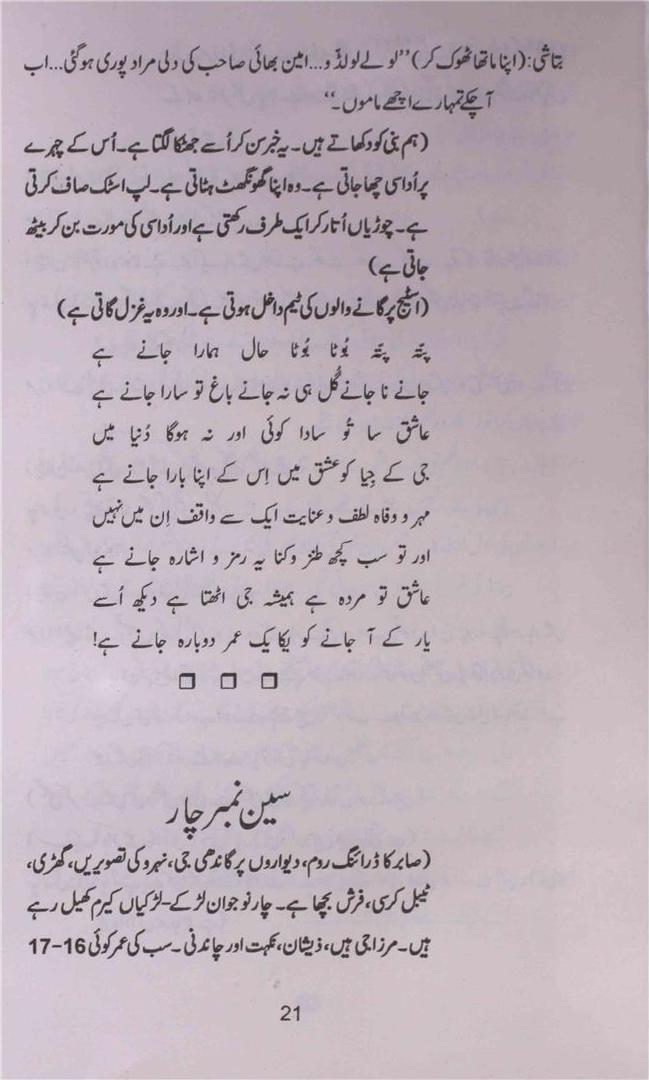 بتاشی: (اپنا ماتھا ٹھوک کر) ”لو لے لو لڈو... امین بھائی صاحب کی دلی مراد پوری ہوگئی... اب
آچکے تمہارے اچھے ماموں۔“
(ہم بنی کو دکھاتے ہیں۔ یہ خبر سن کر اُسے جھٹکا لگتا ہے۔ اُس کے چہرے
پر اُداسی چھا جاتی ہے۔ وہ اپنا گھونگھٹ ہٹاتی ہے۔ لپ اسٹک صاف کرتی
ہے۔ چوڑیاں اُتار کر ایک طرف رکھتی ہے اور اُداسی کی مورت بن کر بیٹھ
جاتی ہے)
(اسٹیج پر گانے والوں کی ٹیم داخل ہوتی ہے۔ اور وہ یہ غزل گاتی ہے)
پتّہ پتّہ بُوٹا بُوٹا حال ہمارا جانے ہے
جانے نا جانے گُل ہی نہ جانے باغ تو سارا جانے ہے
عاشق سا تُو سادا کوئی اور نہ ہوگا دُنیا میں
جی کے جِیا کو عشق میں اِس کے اپنا بارا جانے ہے
مہر و وفاہ لطف و عنایت ایک سے واقف اِن میں نہیں
اور تو سب کچھ طنز و کنا یہ رمز و اشارہ جانے ہے
عاشق تو مردہ ہے ہمیشہ جی اٹھتا ہے دیکھ اُسے
یار کے آ جانے کو یکا یک عمر دوبارہ جانے ہے!
□ □ □
سین نمبر چار
(صابر کا ڈرائنگ روم، دیواروں پر گاندھی جی، نہرو کی تصویریں، گھڑی،
ٹیبل کرسی، فرش بچھا ہے۔ چار نوجوان لڑکے-لڑکیاں کیرم کھیل رہے
ہیں۔ مرزا جی ہیں، ذیشان، نکہت اور چاندنی۔ سب کی عمر کوئی 16-17
21